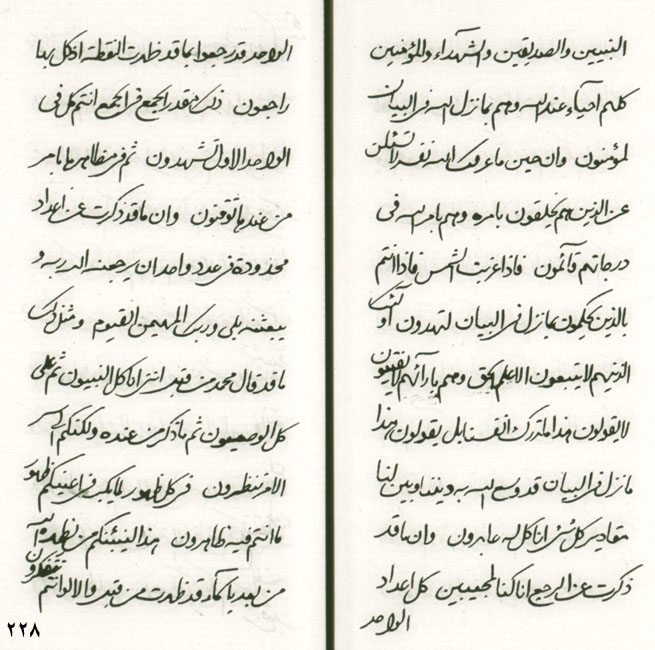 النبيين والصديقين والشهداء والمؤمنين
كلهم احياء عند الله وهم بما نزل الله فى البيان
لمؤمنون وان حين ما عرفك الله نفسه لتسئلن
عن الذين هم يخلقون بامره وهم بامر الله فى
درجاتهم قائمون فاذا غربت الشمس فاذا انتم
بالذين يحكمون بما نزل فى البيان لتهدون اولئك
الذينهم لا يتبعون الا علم الحق وهم بارائهم لا يفتيون
لا يقولون هذا ما تدرك انفسنا بل يقولون هذا
ما نزل فى البيان قد وسع الله به دينه وبين لنا
مقادير كل شىء انا كل له عابدون وان ما قد
ذكرت عن الرجع انا كنا لمجيبين كل اعداد
الواحد
الواحد قد رجعوا بما قد ظهرت النقطة اذ كل بها
راجعون ذلك فى قدر الجمع فى الجمع انتم كل فى
الواحد الاول تشهدون ثم فى مظاهرها بامر
من عندها توقنون وان ما قد ذكرت عن اعداد
محدودة فى عدد واحد ان يرجعنه الله ربه و
يبعثنه بلى وربك المهيمن القيوم ومثل ذلك
ما قد قال محمد من قبل اننى انا كل النبيون ثم على
كل الوصييون ثم ما ذكر من عنده ولكنكم الى
الامر تنظرون فى كل ظهور لا يكبر فى اعينكم ظهور
ما انتم فيه ظاهرون هذا لينبئنكم من يظهره الله
من بعد يا كما قد ظهرت من قبل والا لو انتم
تتفكرون
٢٢٨